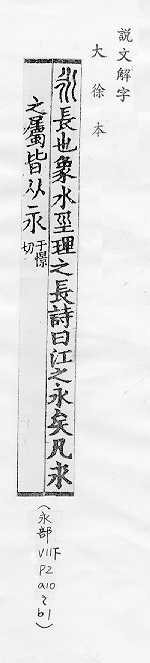 説文解字
大徐本
永長也象水巠理之長詩曰江之永矣凡永
之屬皆从永于憬切
(永部VII下P2a10~b1)